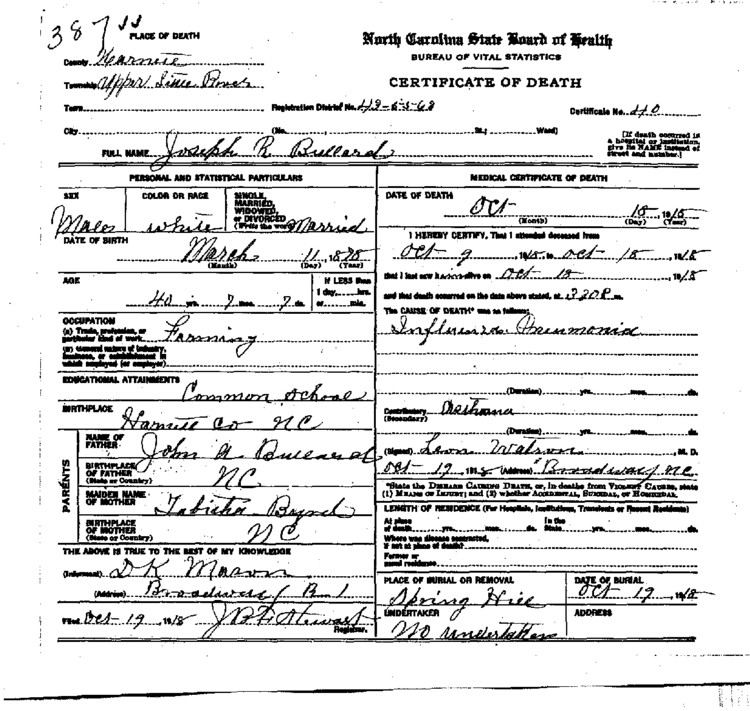 387
PLACE OF DEATH
North Carolina State Board of Health
BUREAU OF VITAL STATISTICS
County Harnett
Township Upper Little River
CERTIFICATE OF DEATH
Town Registration District No. 43-6-5-68 Certificate No. 40
City (No. St.; Ward)
[If death occurred in a hospital or institution, give its NAME instead of street and number.]
FULL NAME Joseph R Bullard
PERSONAL AND STATISTICAL PARTICULARS
SEX COLOR OR RACE SINGLE, MARRIED, WIDOWED, or DIVORCED (Write the word)
Male white Married
DATE OF BIRTH
March 11, 1878
(Month) (Day) (Year)
AGE
40 yrs. 7 mos. 7 ds.
If LESS than 1 day, hrs. or min.
OCCUPATION
(a) Trade, profession, or particular kind of work Farming
(b) General nature of industry, business, or establishment in which employed (or employer)
EDUCATIONAL ATTAINMENTS
Common School
BIRTHPLACE
Harnett Co NC
PARENTS
NAME OF FATHER John A Bullard
BIRTHPLACE OF FATHER (State or Country) NC
MAIDEN NAME OF MOTHER Tabitha Byrd
BIRTHPLACE OF MOTHER (State or Country) NC
THE ABOVE IS TRUE TO THE BEST OF MY KNOWLEDGE
(Informant) D K Mason
(Address) Broadway R 1
Filed Oct 19 1918 Stewart
Registrar.
MEDICAL CERTIFICATE OF DEATH
DATE OF DEATH
Oct 18 1918
(Month) (Day) (Year)
I HEREBY CERTIFY, That I attended deceased from
Oct 9, 1918 to Oct 18, 1918
that I last saw him alive on Oct 18, 1918
and that death occurred on the date above stated, at 320 P m.
The CAUSE OF DEATH* was as follows:
Influenza Pneumonia
(Duration) yrs. mos. ds.
Contributory
(Secondary)
(Duration) yrs. mos. ds.
(Signed) Leon Watson, M. D.
Oct 19 1918 (Address) Broadway, NC
*State the DISEASE CAUSING DEATH, or, in deaths from VIOLENT CAUSES, state
(1) MEANS OF INJURY; and (2) whether ACCIDENTAL, SUICIDAL, or HOMICIDAL.
LENGTH OF RESIDENCE (For Hospitals, Institutions, Transients or Recent Residents)
At place of death yrs. mos. ds. In the State yrs. mos. ds.
Where was disease contracted, if not at place of death?
Former or usual residence
PLACE OF BURIAL OR REMOVAL DATE OF BURIAL
Spring Hill Oct 19 1918
UNDERTAKER ADDRESS
No undertaker